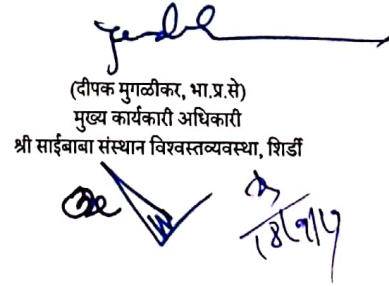 (दीपक मुगळीकर, भा.प्र.से)
मुख्य कार्यकारी अधिकारी
श्री साईबाबा संस्थान विश्वस्तव्यवस्था, शिर्डी